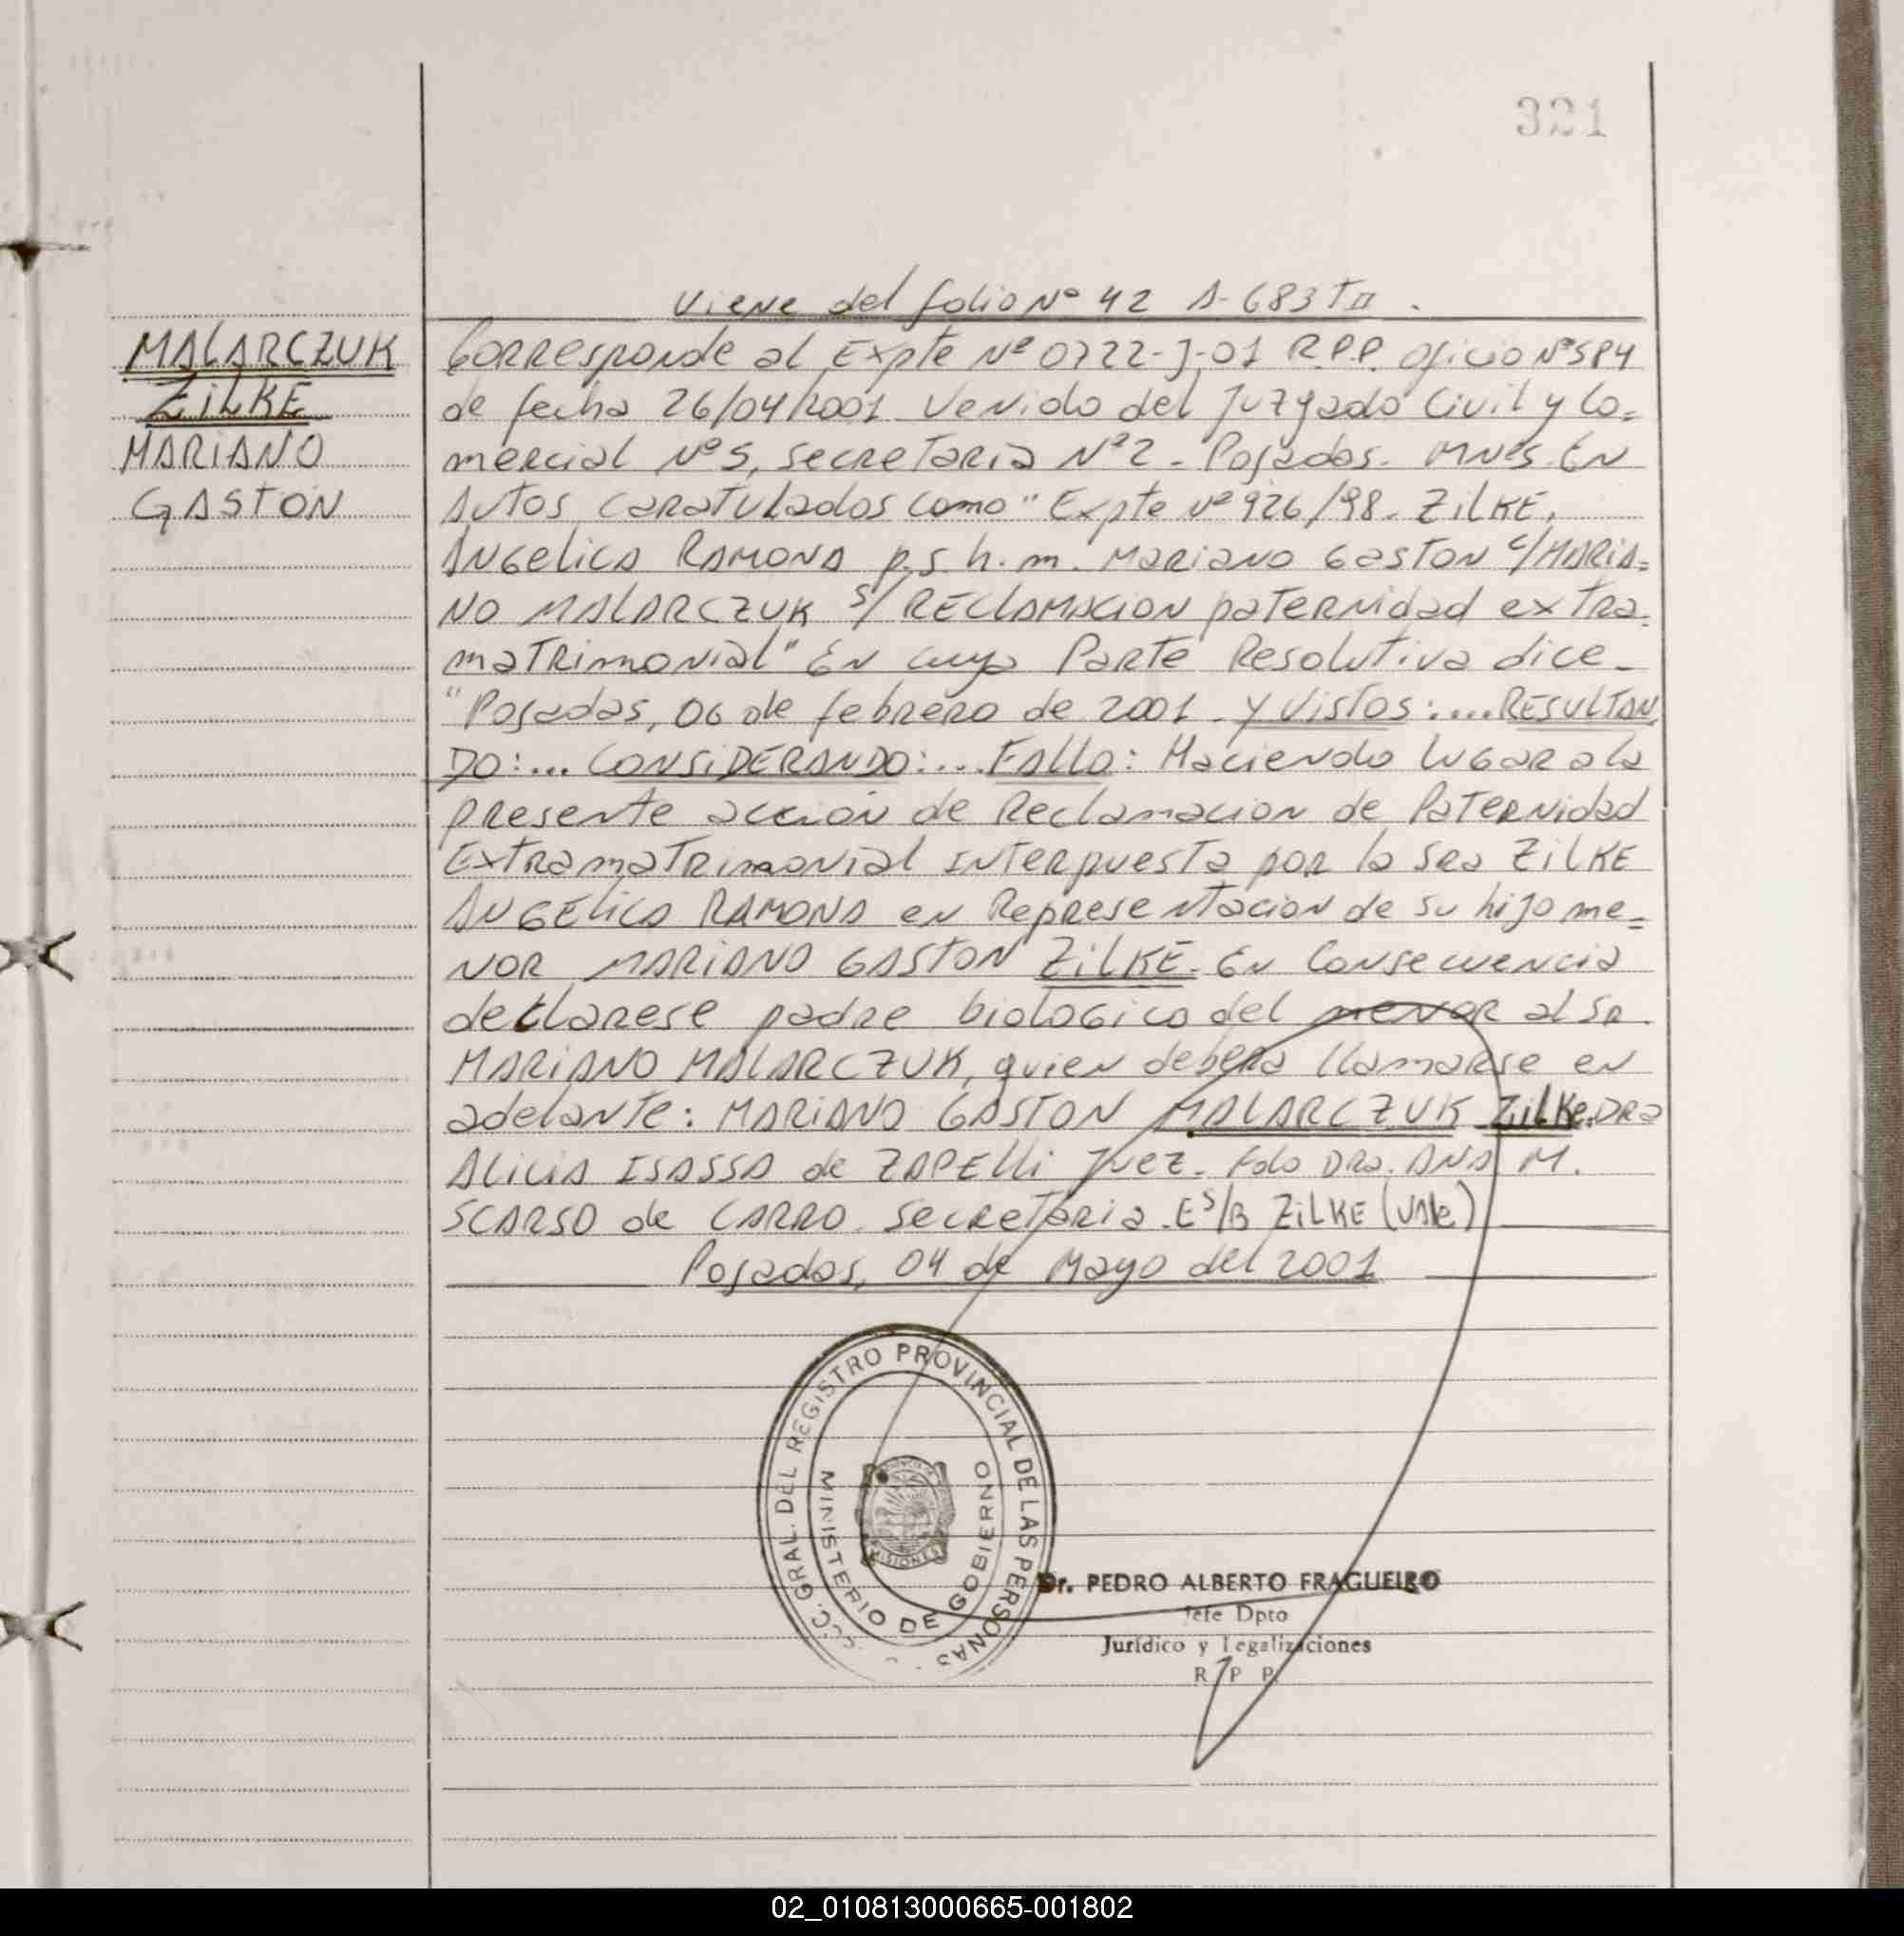 321
Viene del folio Nº 42 A-683 T II.
MALARCZUK
ZILKE
MARIANO
GASTON
Corresponde al Expte Nº 0722-J-01 R.P.P. oficio Nº 584
de fecha 26/04/2001 Venido del Juzgado Civil y Co=
mercial Nº 5, secretaria Nº 2 - Posadas. Mnes. En
Autos caratulados como "Expte Nº 926/98. ZILKE,
ANGELICA RAMONA p.s.h.m. MARIANO GASTON c/ MARIA=
NO MALARCZUK s/ RECLAMACION paternidad extra-
matrimonial" En cuya Parte Resolutiva dice-
"Posadas, 06 de febrero de 2001. y Vistos:....RESULTAN
DO:... CONSIDERANDO:... FALLO: Haciendo lugar a la
presente accion de Reclamacion de Paternidad
Extramatrimonial Interpuesta por la Sra ZILKE
ANGELICA RAMONA en Representacion de su hijo me=
NOR MARIANO GASTON ZILKE. En Consecuencia
declarese padre biologico del menor al Sr.
MARIANO MALARCZUK, quien debera llamarse en
adelante: MARIANO GASTON MALARCZUK ZILKE. DRA
ALICIA ISASSA de ZAPELLI Juez. Fdo Dra. ANA M.
SCARSO de CARRO. Secretaria. E S/B ZILKE (Vale)
Posadas, 04 de Mayo del 2001
GRAL. DEL REGISTRO PROVINCIAL DE LAS PERSONAS
MINISTERIO DE GOBIERNO
MISIONES
Dr. PEDRO ALBERTO FRAGUEIRO
Jefe Dpto
Jurídico y Legalizaciones
R P P
02_010813000665-001802